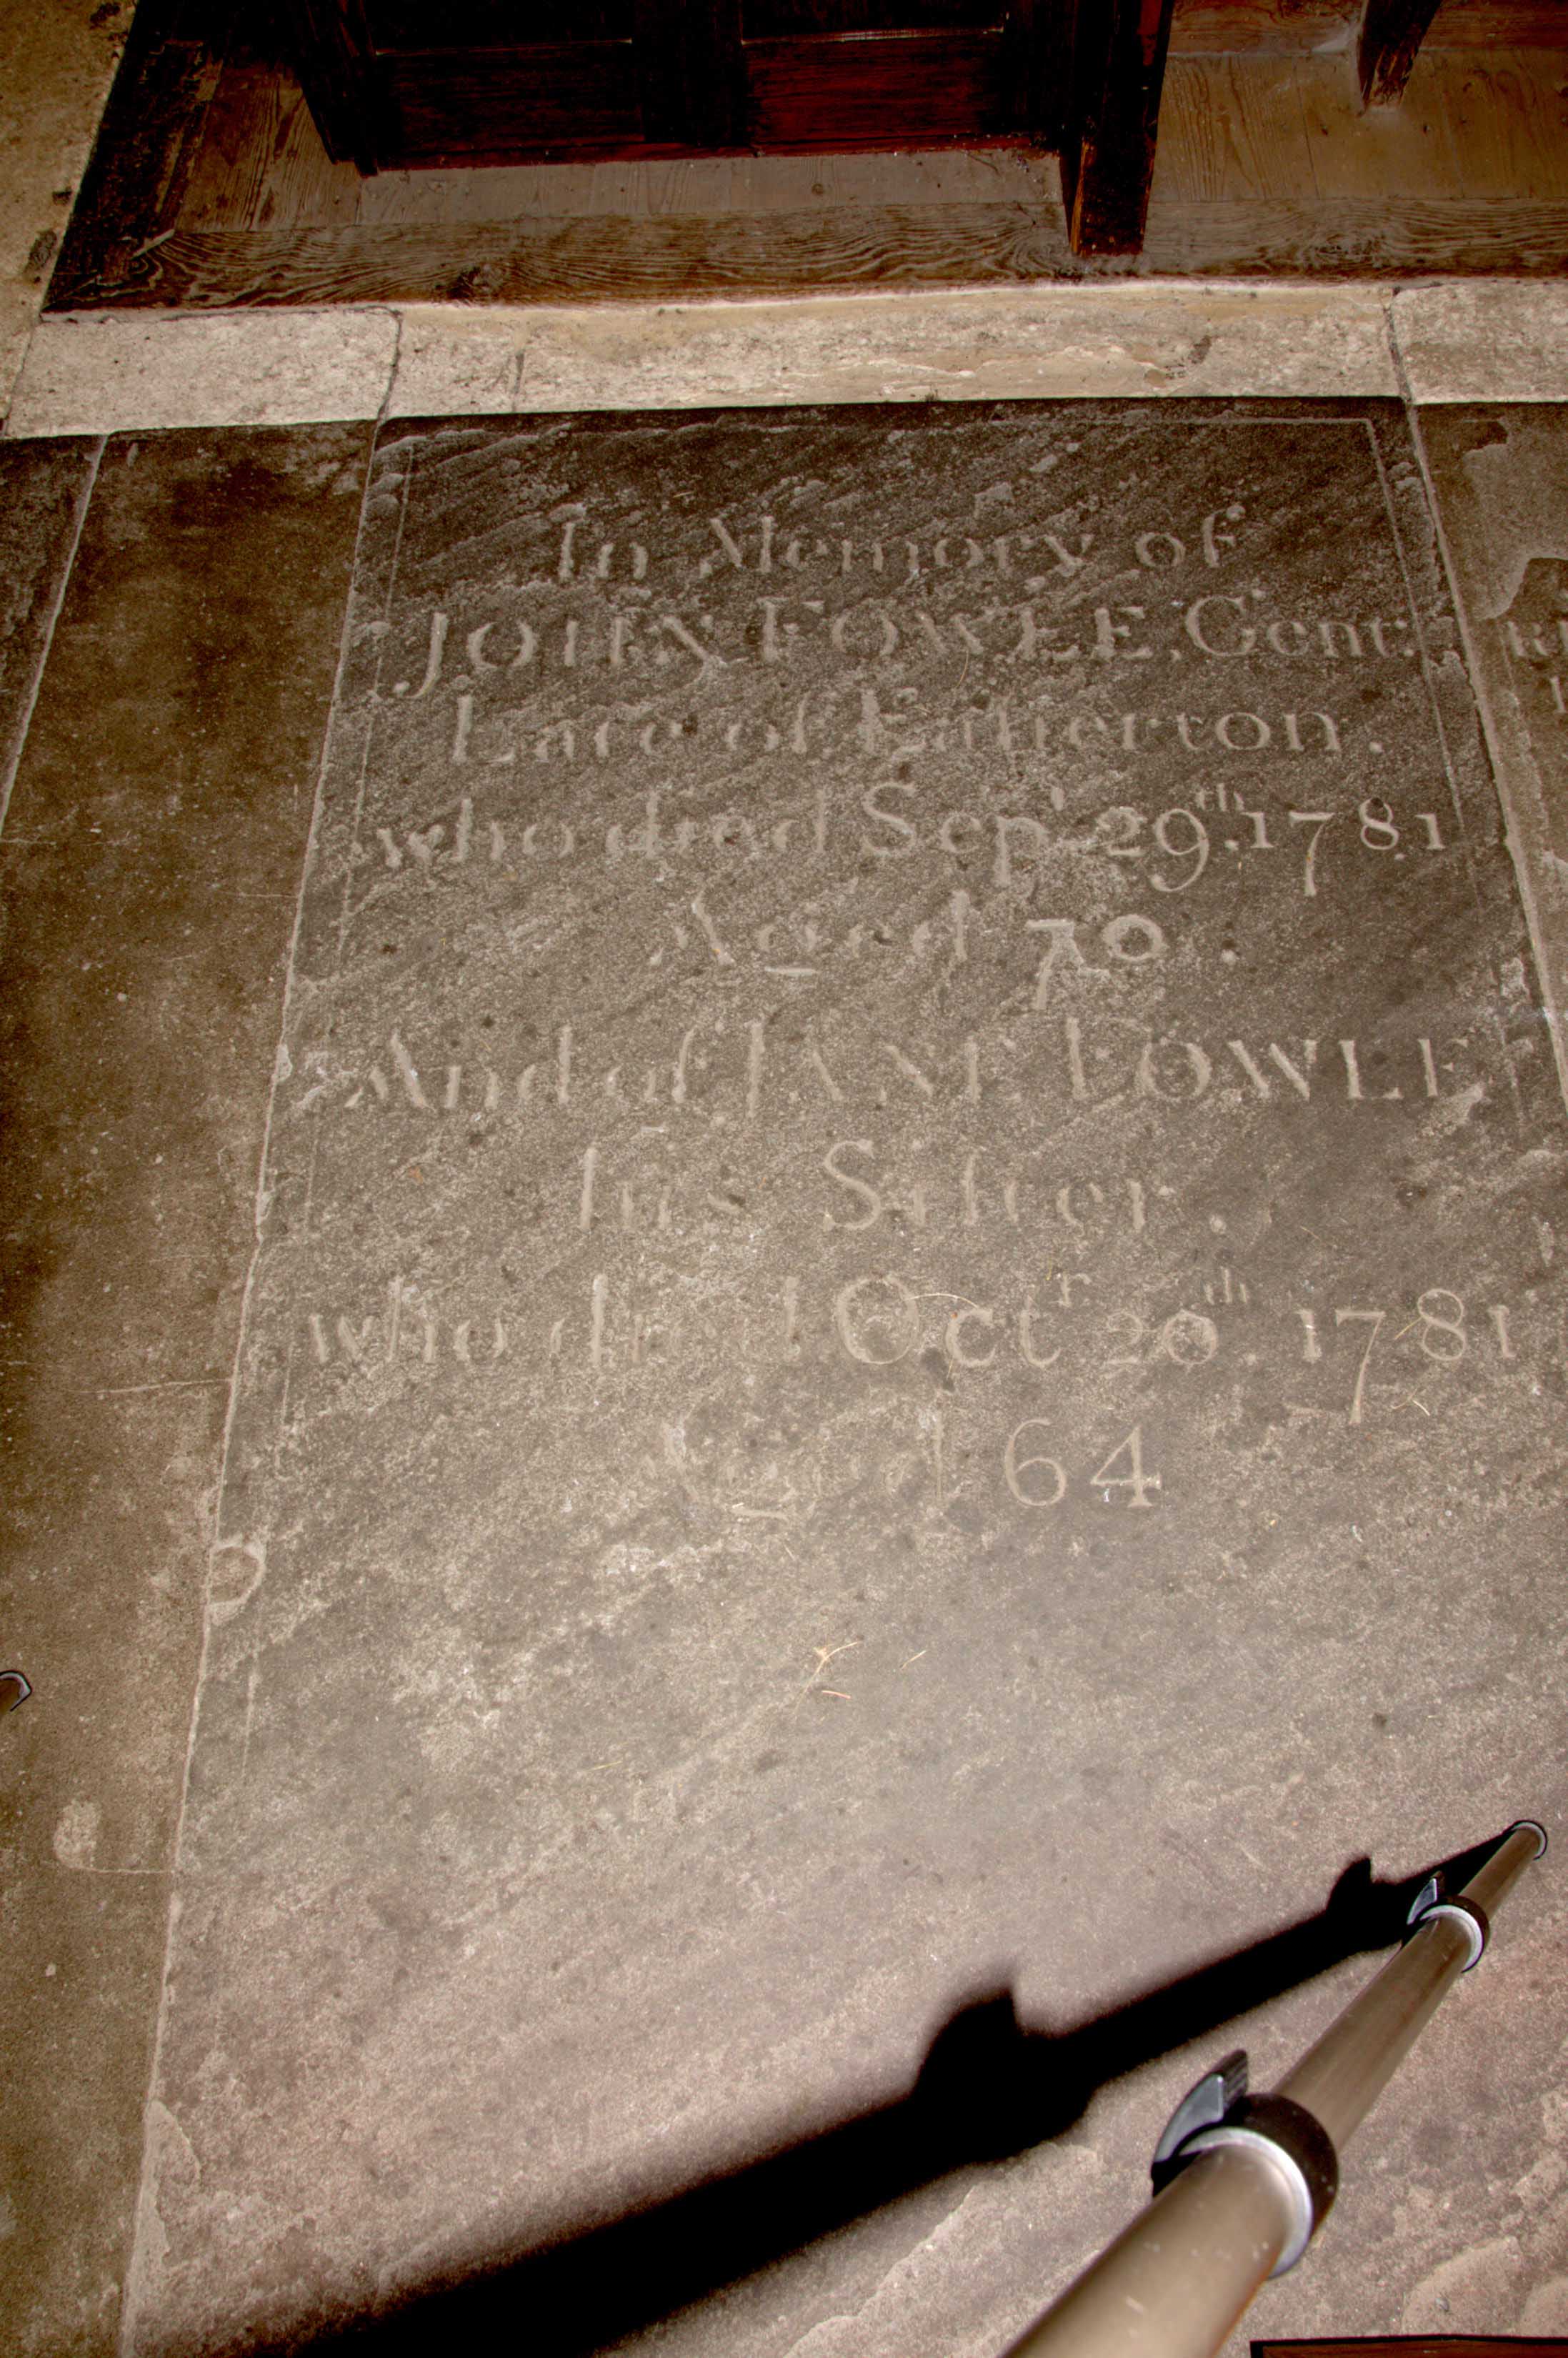 In Memory of
JOHN FOWLE, Gent:
Late of Eatherton.
who died Sepr. 29th. 1781
Aged 70.
And of JANE FOWLE
his Sister.
who died Octr 20th. 1781
Aged 64